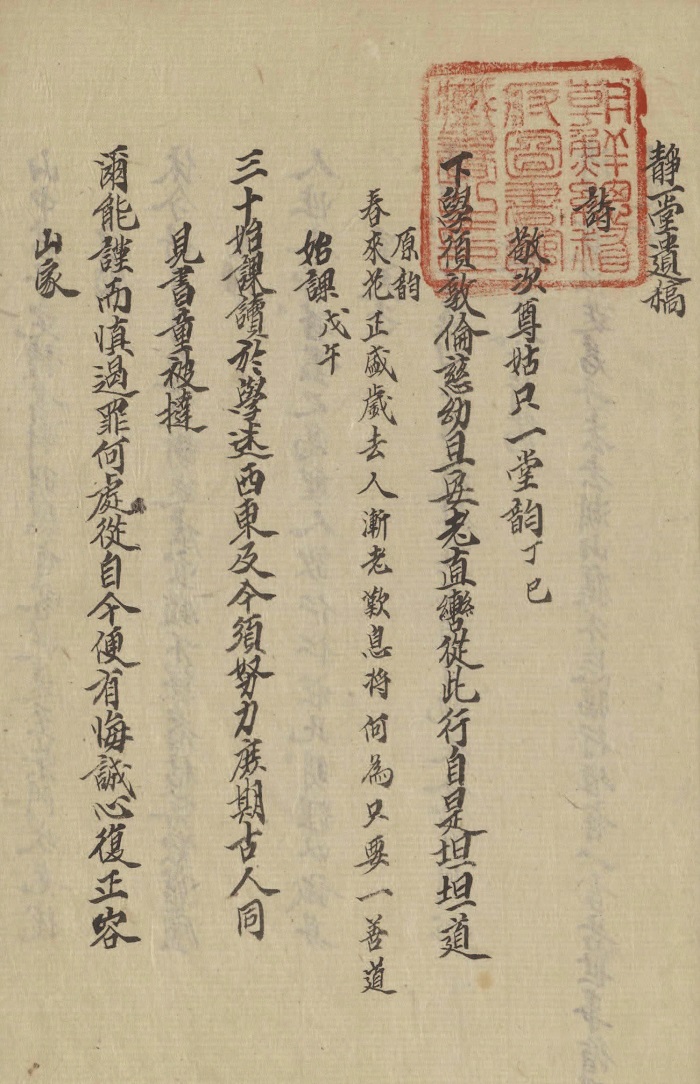 靜一堂遺稿
朝鮮總督
府圖書館
藏書之印
詩
敬次尊姑只一堂韵 丁巳
下學須敦倫慈幼且安老直轡從此行自是坦坦道
原韵
春來花正盛歲去人漸老歎息將何為只要一善道
始課 戊午
三十始課讀於學迷西東及今須努力庶期古人同
見書童被撻
爾能謹而慎過罪何處從自今便有悔誠心復正容
山家